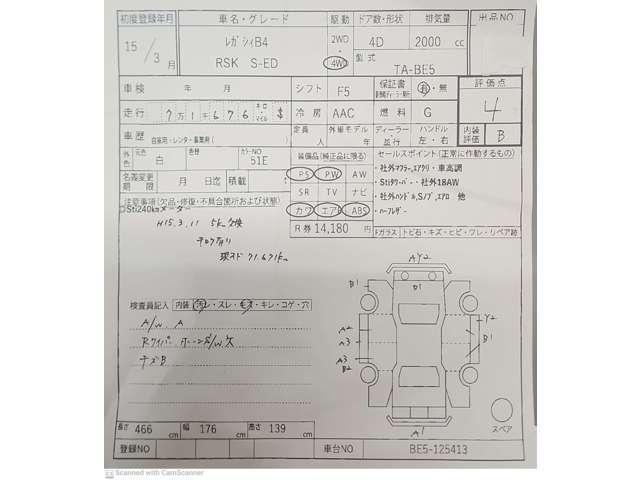 初度登録年月 車名・グレード 駆動 ドア数・形状 排気量 出品NO
15/3月 レガシィB4 RSK S-ED 2WD 4WD 4D 2000 cc
型式 TA-BE5
車検 年 月 シフト F5 保証書 有・無 評価点 4
走行 7万1千676 キロ マイル $ 冷房 AAC 燃料 G
車歴 自家用・レンタ・事業用( ) 定員 人 外車モデル 年 ディーラー 並行 ハンドル 左・右 内装評価 B
外色 元色 白 色替 カラーNO 51E
装備品(純正品に限る) セールスポイント(正常に作動するもの)
名義変更期限 月 日迄 積載
PS PW AW
SR TV ナビ
カワ エアB ABS
R券 14,180円
・社外マフラー,エアクリ・車高調
・Stiタワーバー・社外18AW
・社外ハンドル,Sノブ,エアロ 他
・ハーフレザー
注意事項(欠品・修復・不具合箇所および状態)
Sti240kmメーター
H15.3.11 5km 交換
現メド 71.671km
Fガラス トビ石・キズ・ヒビ・ワレ・リペア跡
検査員記入 内装 汚レ・スレ・モヌ・キレ・コゲ・穴
A/W A
キズB
AY2
B1 B1
A2 Y2
A3 B1
A3
B2
A1
スペア
長さ 466 cm 幅 176 cm 高さ 139 cm
登録NO 車台NO BE5-125413
Scanned with CamScanner